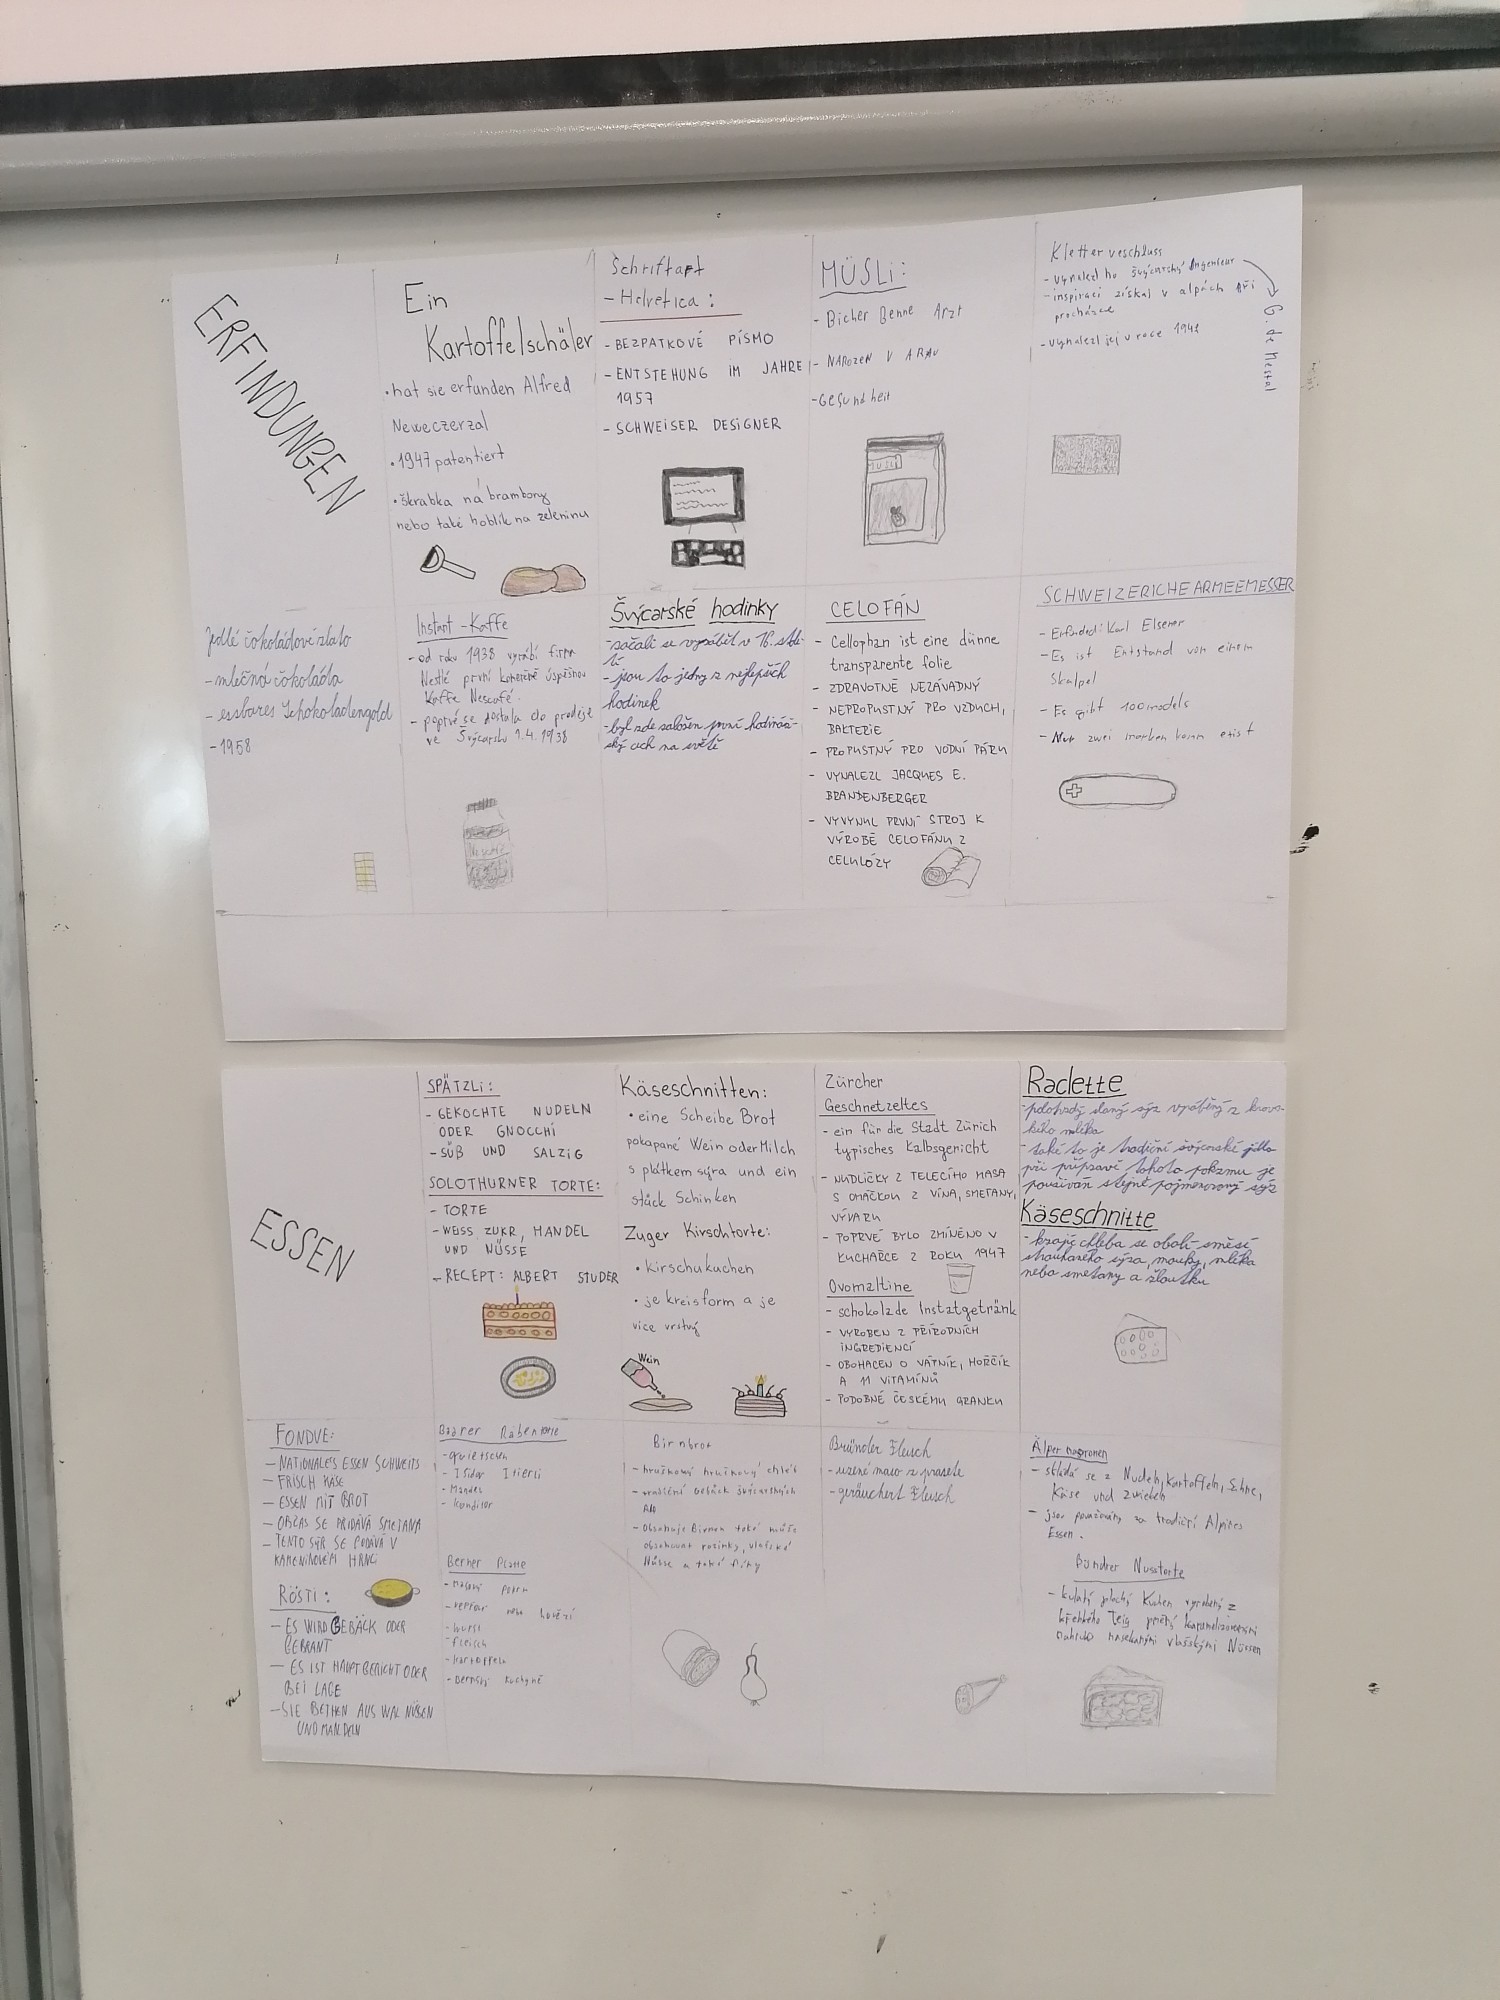 ERFINDUNGEN
Ein
Kartoffelschäler
• hat sie erfunden Alfred
Neweczerzal
• 1947 patentiert
• škrabka na brambory
nebo také hoblík na zeleninu
Schriftart
- Helvetica:
- BEZPATKOVÉ PÍSMO
- ENTSTEHUNG IM JAHRE
1957
- SCHWEISER DESIGNER
MÜSLI:
- Bicher Benne Arzt
- NAROZEN V ARAU
- Gesundheit
MÜSLI
Kletterveschluss
- vynalezl ho švýcarský Ingenieur
G. de Mestal
- inspiraci získal v alpách při
procházce
- vynalezl jej v roce 1941
Jedlé čokoládové zlato
- mléčná čokoláda
- essbares Schokoladengold
- 1958
Instant-Kaffe
- od roku 1938 vyrábí firma
Nestlé první komerčně úspěšnou
Kaffe Nescafé.
- poprvé se dostala do prodeje
ve Švýcarsku 1.4.1938
Švýcarské hodinky
- začali se vyrábět v 16. stole-
tí
- jsou to jedny z nejlepších
hodinek
- byl zde založen první hodinář-
ský cech na světě
CELOFÁN
- Cellophan ist eine dünne
transparente folie
- ZDRAVOTNĚ NEZÁVADNÝ
- NEPROPUSTNÝ PRO VZDUCH,
BAKTERIE
- PROPUSTNÝ PRO VODNÍ PÁRU
- VYNALEZL JACQUES E.
BRANDENBERGER
- VYVYNUL PRVNÍ STROJ K
VÝROBĚ CELOFÁNU Z
CELULÓZY
SCHWEIZERICHE ARMEEMESSER
- Erfunded: Karl Elsener
- Es ist Entstand von einem
Skalpel
- Es gibt 100 models
- Nur zwei marken komm
ESSEN
SPÄTZLI:
- GEKOCHTE NUDELN
ODER GNOCCHI
- SÜß UND SALZIG
SOLOTHURNER TORTE:
- TORTE
- WEISS, ZUKR, MANDEL
UND NÜSSE
- RECEPT: ALBERT STUDER
Käseschnitten:
• eine Scheibe Brot
pokapané Wein oder Milch
s plátkem sýra und ein
stück Schinken
Zuger Kirschtorte:
• kirschukuchen
• je kreisform a je
více vrstvý
Wein
Zürcher
Geschnetzeltes
- ein für die Stadt Zürich
typisches Kalbsgericht
- NUDLIČKY Z TELECÍHO MASA
S OMÁČKOU Z VÍNA, SMETANY,
VÝVARU
- POPRVÉ BYLO ZMÍNĚNO V
KUCHAŘCE Z ROKU 1947
Ovomaltine
- schokolade Instatgetränk
- VYROBEN Z PŘÍRODNÍCH
INGREDIENCÍ
- OBOHACEN O VÁPNÍK, HOŘČÍK
A 11 VITAMÍNŮ
- PODOBNÉ ČESKÉMU GRANKU
Raclette
- polotvrdý slaný sýr vyráběný z kravs-
kého mléka
- také to je tradiční švýcarské jídlo
při přípravě tohoto pokrmu je
používán stejně pojmenovaný sýr
Käseschnitte
- krajíc chleba se obalí směsí
strouhaného sýra, mouky, mléka
nebo smetany a žloutku
FONDUE:
- NATIONALES ESSEN SCHWEITS
- FRISCH KÄSE
- ESSEN MIT BROT
- OBČAS SE PŘIDÁVÁ SMETANA
- TENTO SÝR SE PODÁVÁ V
KAMENINOVÉM HRNCI
RÖSTI:
- ES WIRD GEBÄCK ODER
GEBRANT
- ES IST HAUPTGERICHT ODER
BEILAGE
- SIE BETHEN AUS WAL NÜßEN
UND MANDELN
Baarer Räbentorte
- Isidor
- Mandel
- konditor
Berner Platte
- masový pokrm
- vepřové nebo hovězí
- wurst
- fleisch
- kartoffeln
- Bernský kuchyně
Birnbrot
- hruškový hruškový chléb
- tradiční Gebäck švýcarských
Alp
- Obsahuje Birnen také může
obsahovat rozinky, vlašské
Nüsse a také fíky
Bründer Fleisch
- uzené maso z prasete
- geräuchert Fleisch
Älper magronen
- skládá se z Nudeln, Kartoffeln, Sahne,
Käse und zwiebeln
- jsou považovány za tradiční Alpines
Essen.
Bündner Nusstorte
- kulatý plochý Kuchen vyrobený z
křehkého Teig plněný karamelizovanými
nahrubo nasekanými vlašskými Nüssen